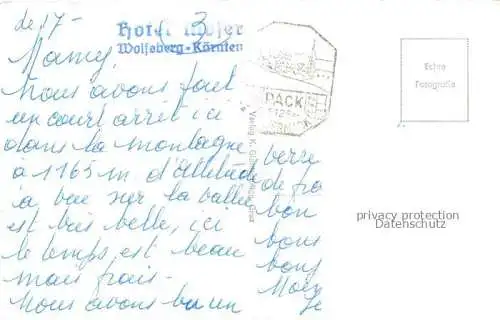 de 17-
Hotel Moser
Wolfsberg-Kärnten
Mamy,
Nous avons fait
un court arrêt ici
dans la montagne
à 1165 m d'altitude
la vue sur la vallée
est très belle, ici
le temps est beau
mais frais -
Nous avons bu un
verre
de
bon
bons
bons
PACK
Echte
Fotografie
privacy protection
Datenschutz